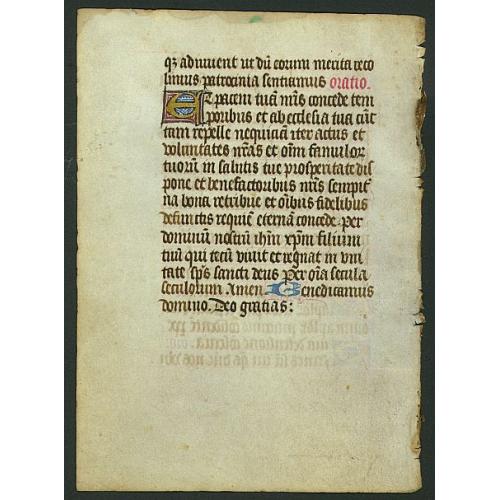 qz adiuvent ut dū eorum merita reco
limus patrocinia sentiamus oratio.
Et pacem tuā nr̄is concede tem
poribus et ab ecclesia tua cūc
tam repelle nequiciam iter actus et
voluntates nr̄as et om̄i famulor
tuorum in salutis tue prosperitate dis
pone et benefactoribus nr̄is sempit̄
na bona retribue et oībus fidelibus
defunctis requiē eternā concede. per
dominum nostrū ihm̄ xp̄m filium
tuū qui tecū vivit et regnat in uni
tate sp̄s sancti deus Per oīa secula
seculorum Amen. Benedicamus
domino. Deo gratias: